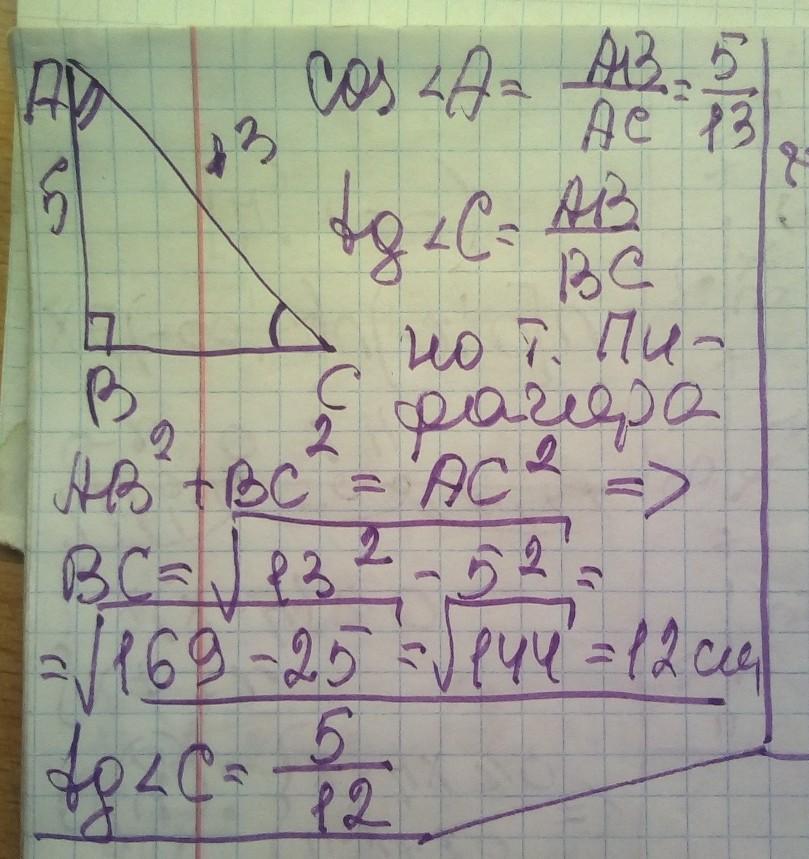 A
5
13
B
C
cos <A = AB/AC = 5/13
tg <C = AB/BC
по т. Пи-
фагора
AB² + BC² = AC² =>
BC = √13² - 5² =
= √169 - 25 = √144 = 12 см
tg <C = 5/12